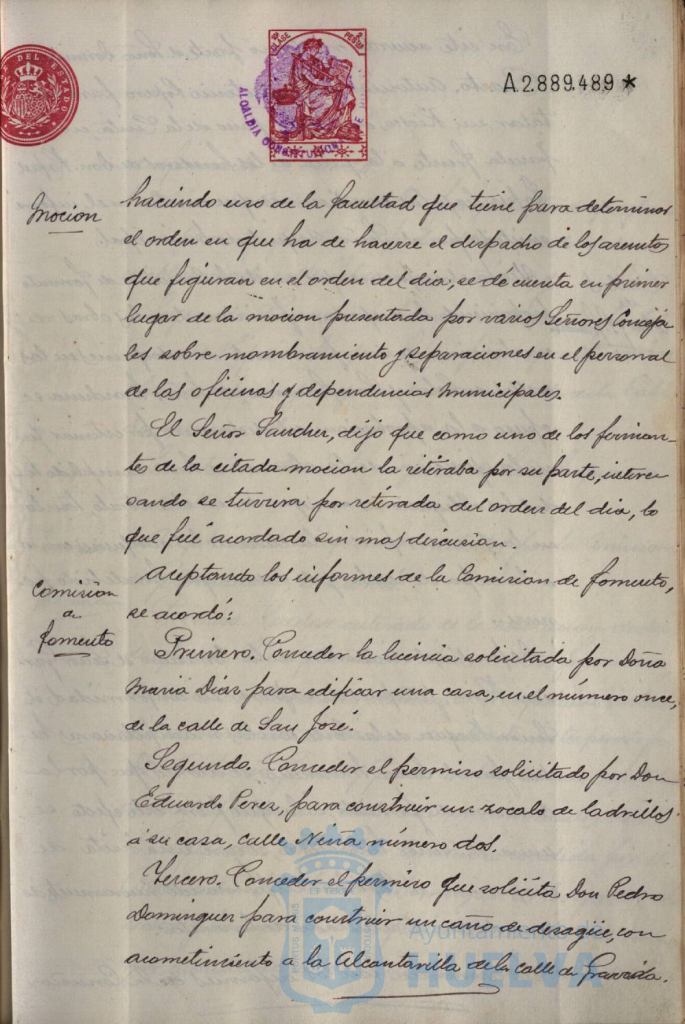 DEL ESTADO
CLASE
PESETA
ALCALDIA CONSTITUCION
A.2.889.489 *
Mocion
haciendo uso de la facultad que tiene para determinar
el orden en que ha de hacerse el despacho de los asuntos
que figuran en el orden del dia, se dé cuenta en primer
lugar de la mocion presentada por varios Señores Conceja
les sobre nombramiento y separaciones en el personal
de las oficinas y dependencias Municipales.
El Señor Sanchez, dijo que como uno de los firman-
tes de la citada mocion la retiraba por su parte, intere
sando se tuviera por retirada del orden del dia, lo
que fué acordado sin mas discusion.
Comision
de
fomento
Aceptando los informes de la Comision de fomento,
se acordó:
Primero. Conceder la licencia solicitada por Doña
Maria Diaz para edificar una casa, en el número once,
de la calle de San José.
Segundo. Conceder el permiso solicitado por Don
Eduardo Perez, para construir un zocalo de ladrillos
á su casa, calle Niña número dos.
Tercero. Conceder el permiso que solicita Don Pedro
Dominguez para construir un caño de desagüe, con
acometimiento a la Alcantarilla de la calle de
Ayuntamiento de
HUELVA